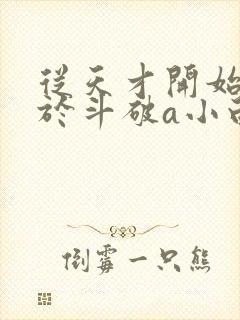 從天才開始
於斗破a小
倒霉一只熊